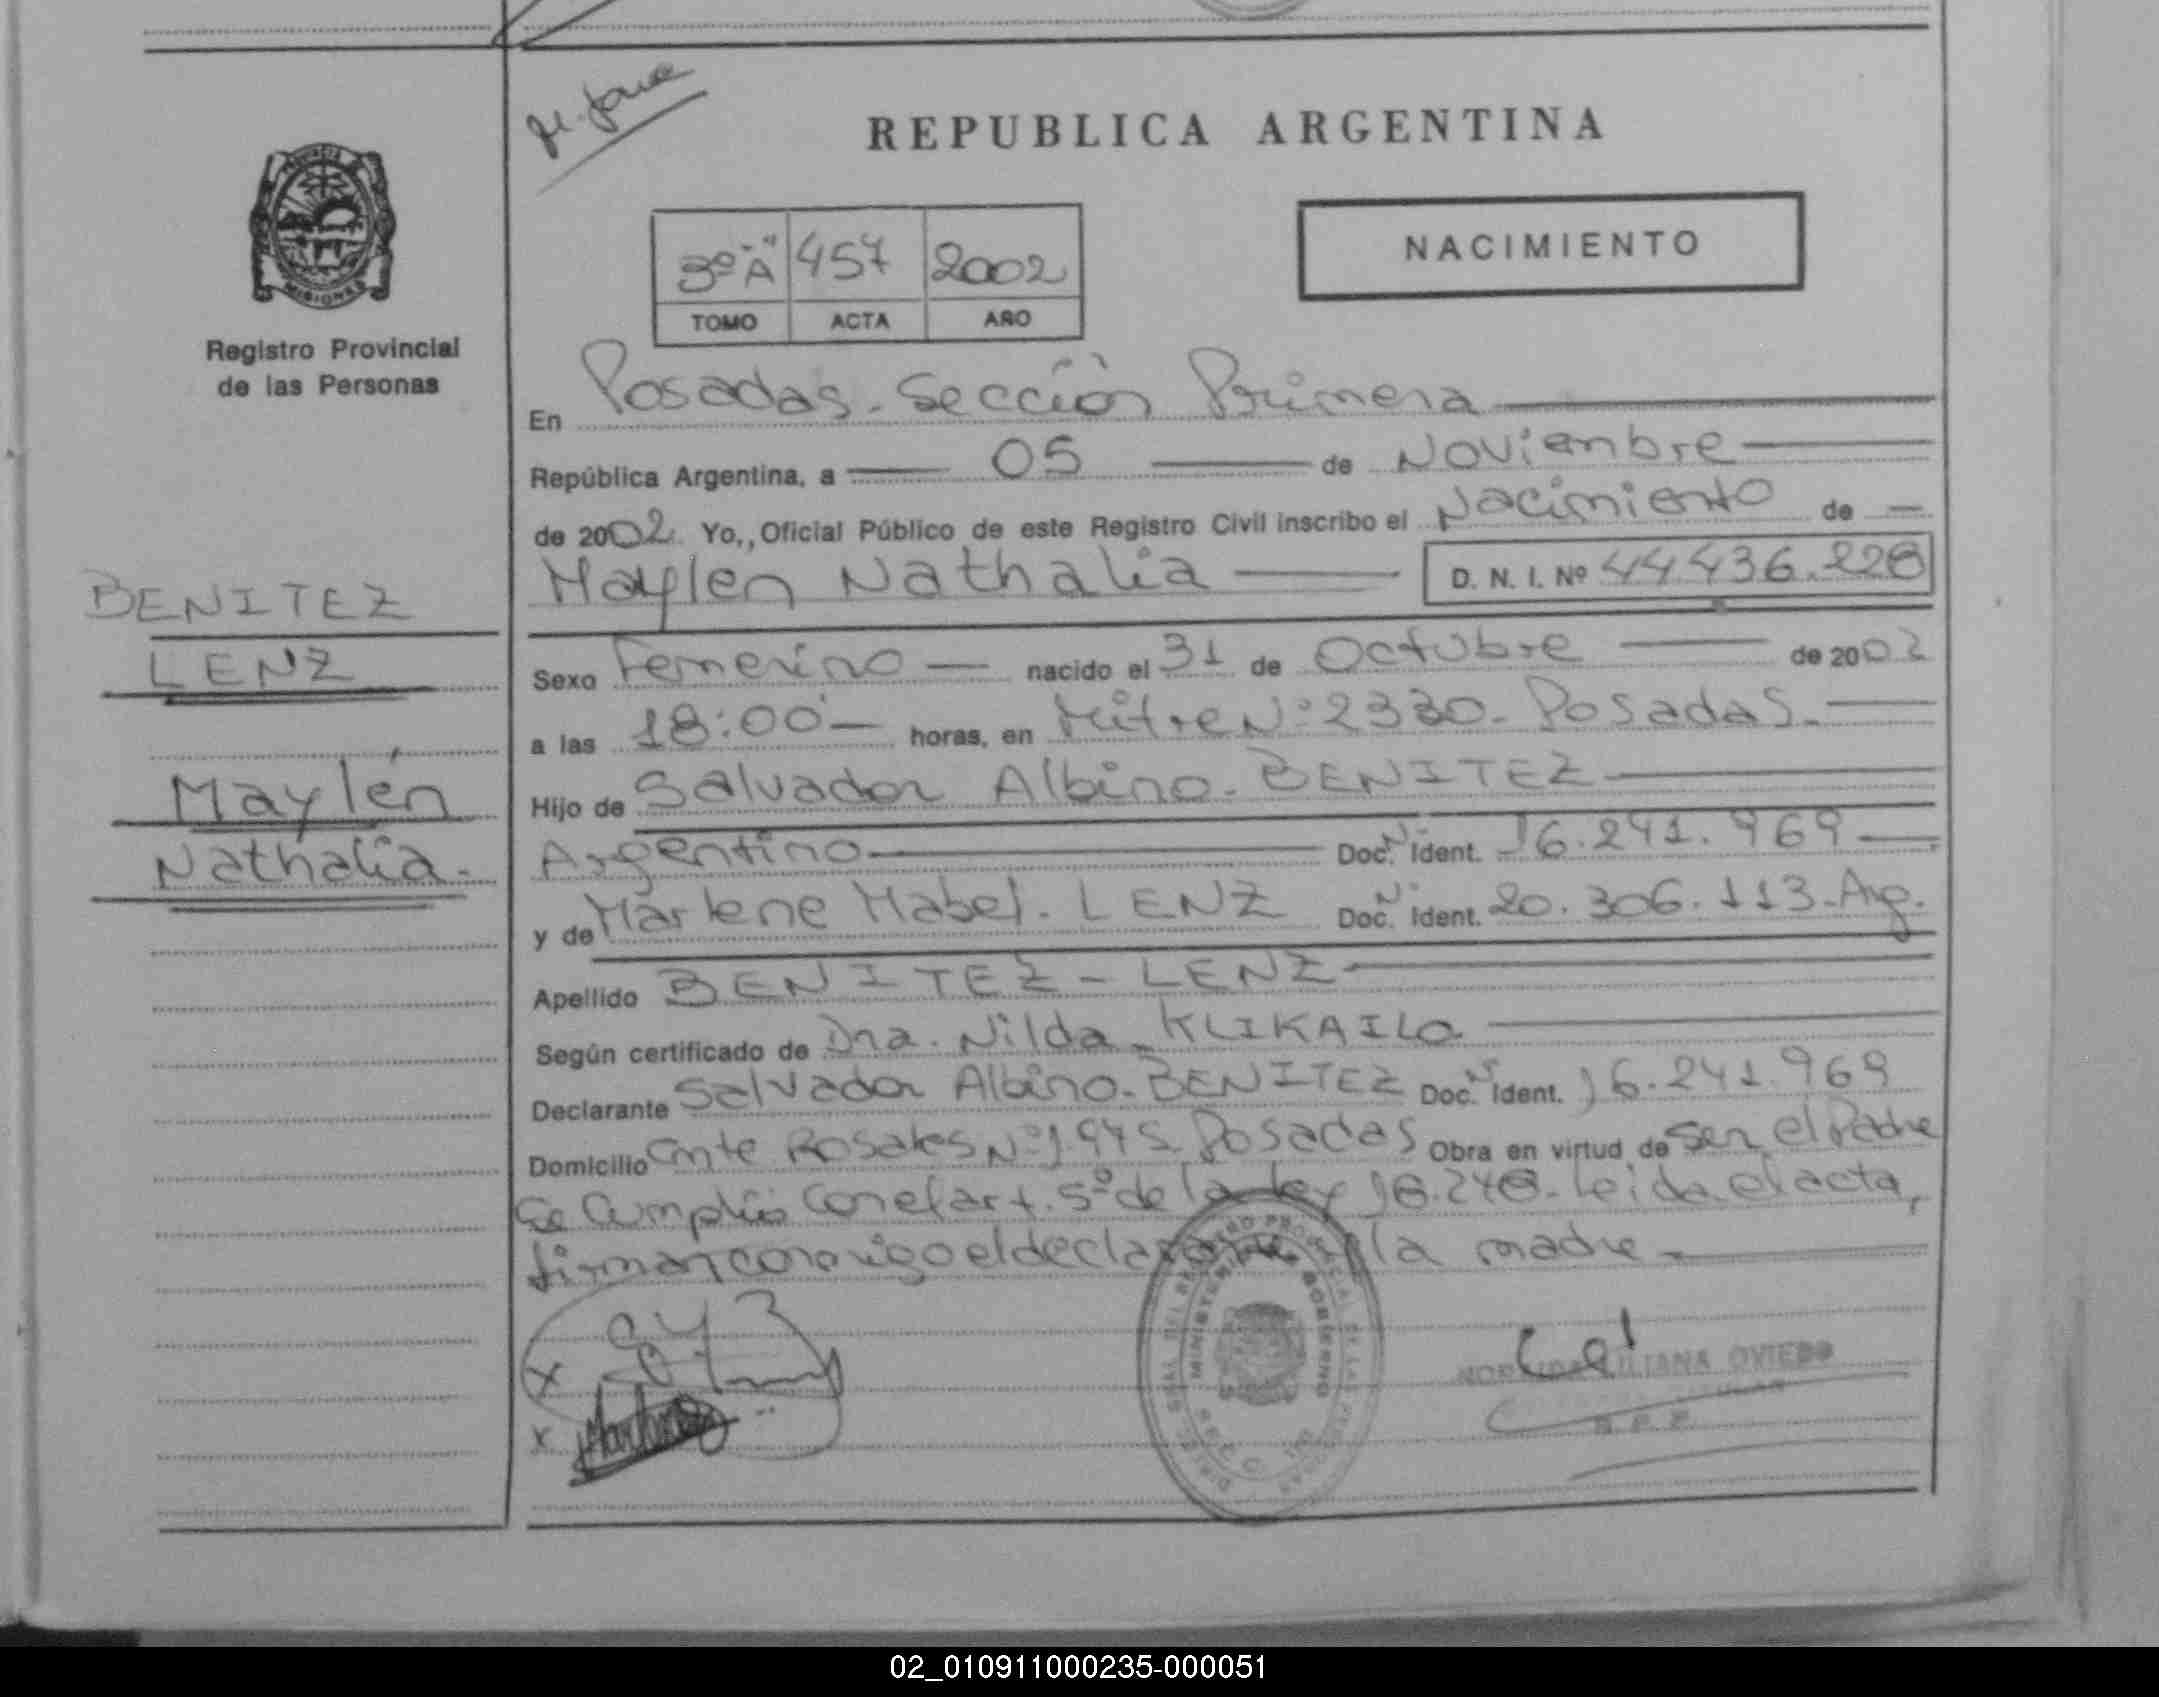 REPUBLICA ARGENTINA
NACIMIENTO
3º "A" 457 2002
TOMO ACTA AÑO
PROVINCIA DE MISIONES
Registro Provincial
de las Personas
En Posadas. Sección Primera
República Argentina, a 05 de Noviembre
de 2002 Yo,, Oficial Público de este Registro Civil inscribo el Nacimiento de
Maylen Nathalia D. N. I. Nº 44.436.228
BENITEZ
LENZ
Maylén
Nathalia.
Sexo Femenino nacido el 31 de Octubre de 2002
a las 18:00 horas, en Mitre Nº 2330. Posadas.
Hijo de Salvador Albino. BENITEZ
Argentino Doc. Nº Ident. 16.241.969
y de Marlene Mabel. LENZ Doc. Nº Ident. 20.306.113. Arg.
Apellido BENITEZ - LENZ
Según certificado de Dra. Nilda KLIKAILO
Declarante Salvador Albino. BENITEZ Doc. Nº Ident. 16.241.969
Domicilio Cnte Rosales Nº 1945 Posadas Obra en virtud de ser el Padre
Se Cumplió con el art. 5º de la Ley 18.248. Leída el acta,
firman conmigo el declarante y la madre.
LILIANA OVIEDO
R. P. P.
02_010911000235-000051